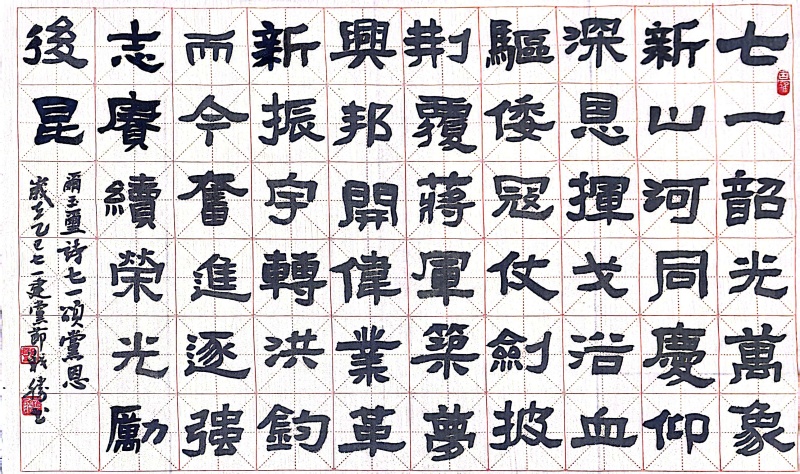 七一韶光萬象
新山河同慶仰
深恩揮戈浴血
驅倭冦仗劍披
荆覆蔣軍築夢
興邦開偉業革
新振宇轉洪鈞
而今奮進逐強
志賡續榮光勵
後昆
爾玉璽詩七一頌黨恩
歲在乙巳七一建黨節